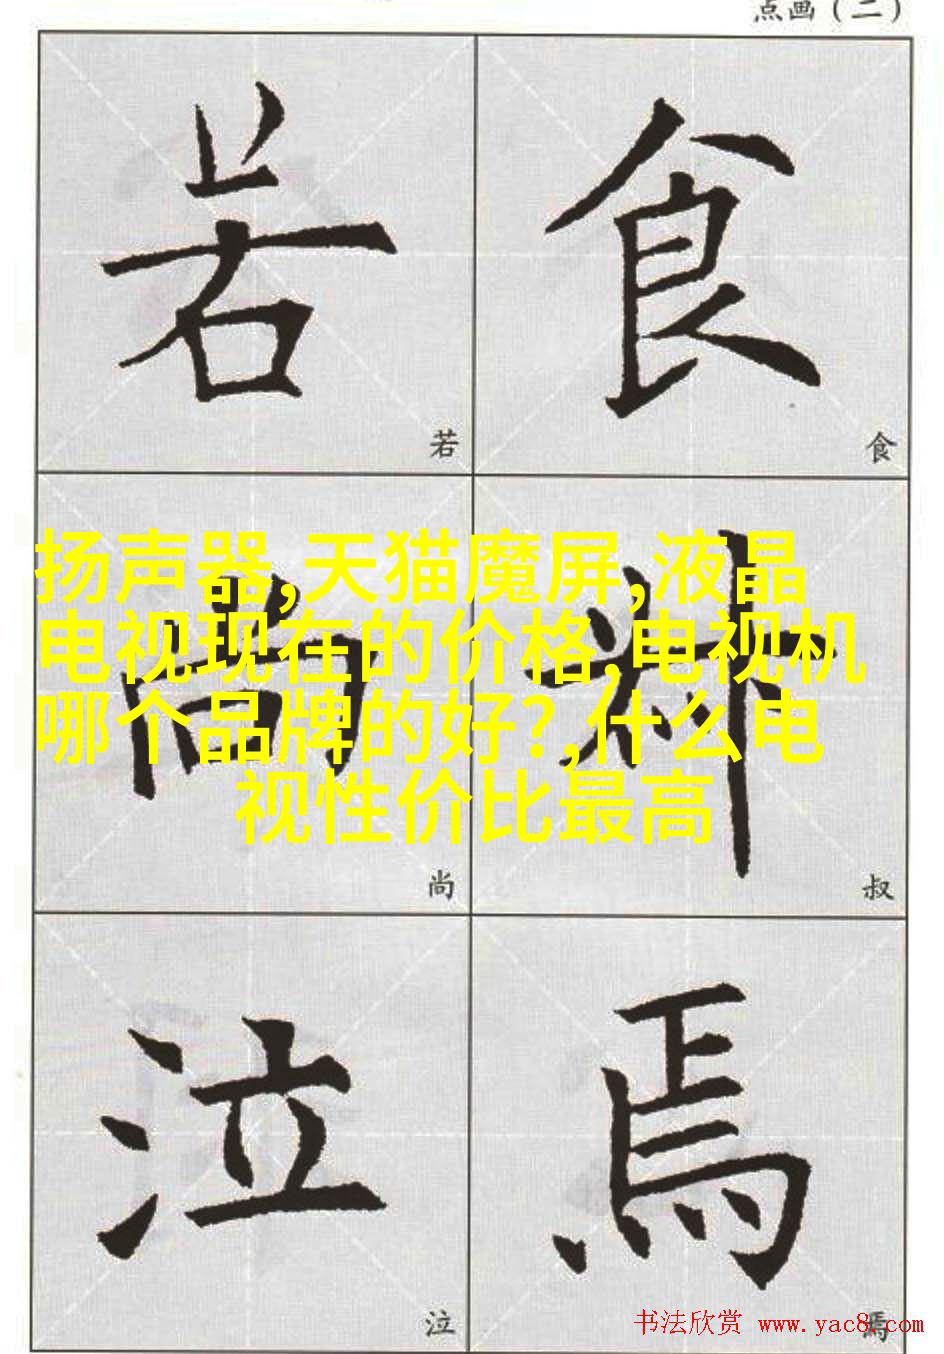 点画（二）
若
食
若
食
扬声器,天猫魔屏,液晶
电视现在的价格,电视机
哪个品牌的好?,什么电
视性价比最高
尚
叔
尚
叔
泣
焉
泣
焉
书法欣赏 www.yac8.com